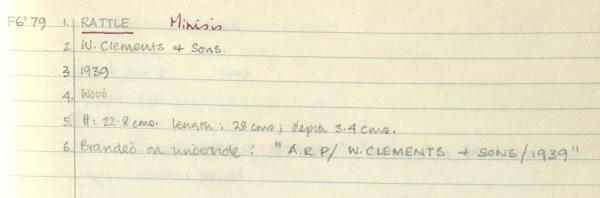 F6'79 1. RATTLE Minisis
2. W. Clements + Sons.
3 1939
4. Wood
5. H: 22.8 cms. length: 28 cms; depth 3.4 cms.
6. Branded on underside: "A.R.P/ W. CLEMENTS + SONS/1939"